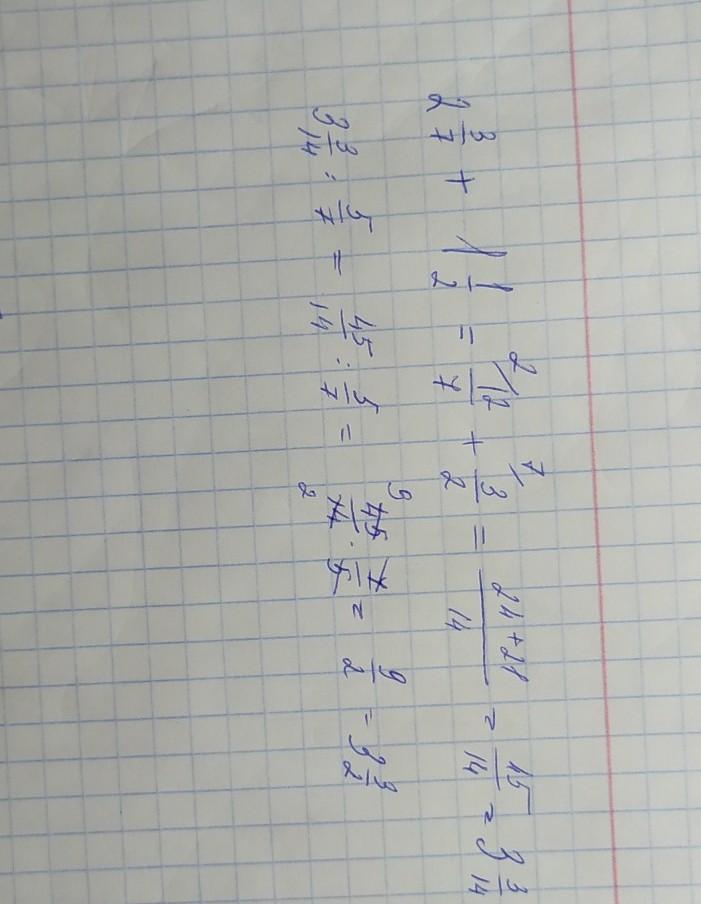 2 3/7 + 1 1/2 = 2/ 12/7 + 7/ 3/2 = (24+21)/14 = 45/14 = 3 3/14
3 3/14 : 5/7 = 45/14 : 5/7 = 9 45/14 2 · 7/5 = 9/2 = 3 3/2